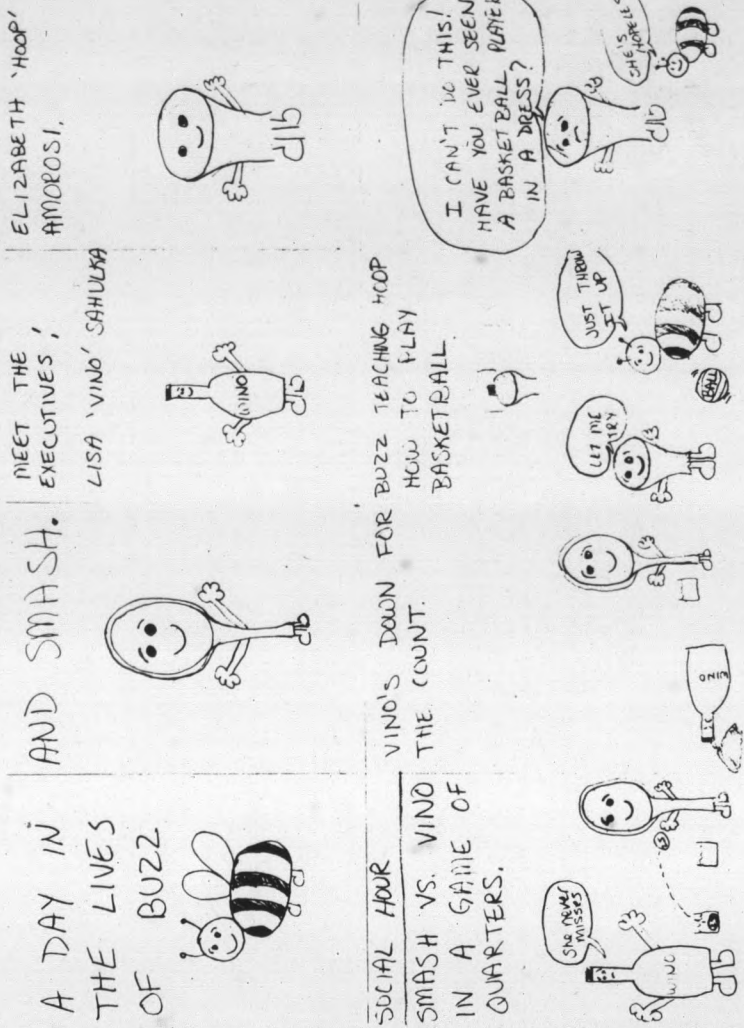 A DAY IN
THE LIVES
OF BUZZ
AND SMASH.
MEET THE
EXECUTIVES,
LISA 'VINO' SAHULKA
ELIZABETH 'HOOP'
AMOROSI.
WINO
SOCIAL HOUR
SMASH VS. VINO
IN A GAME OF
QUARTERS.
She never
misses
WINO
VINO'S DOWN FOR
THE COUNT.
VINO
BUZZ TEACHING HOOP
HOW TO PLAY
BASKETBALL
LET ME
TRY
JUST THROW
IT UP
BALL
I CAN'T DO THIS!
HAVE YOU EVER SEEN
A BASKETBALL PLAYER
IN A DRESS?
SHE'S